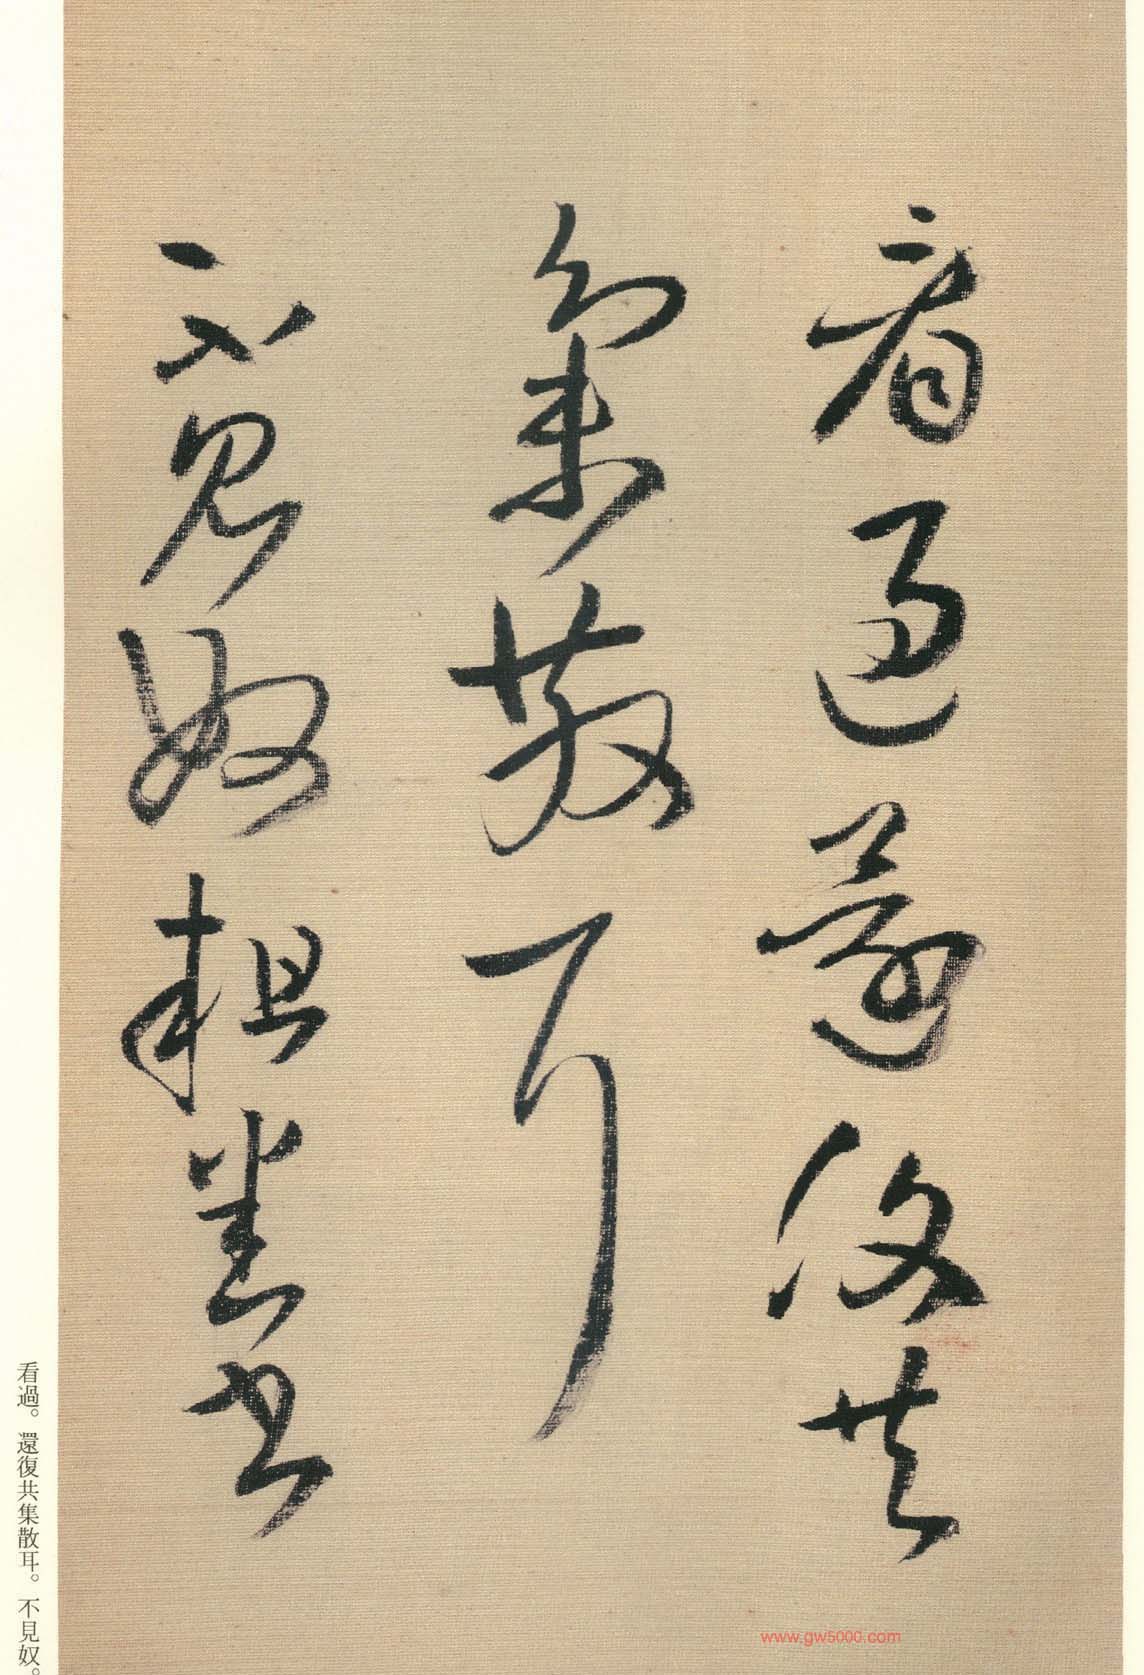 看過還復共
集散耳
不見奴粗悉書
看過。還復共集散耳。不見奴。
www.gw5000.com